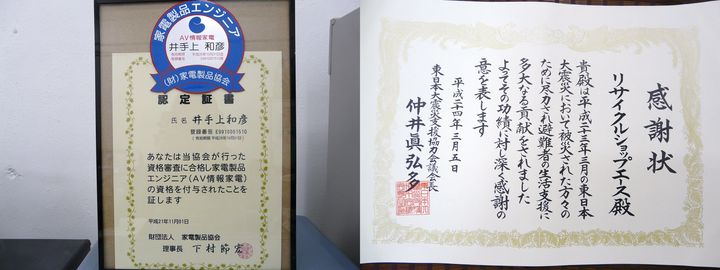 家電製品エンジニア
AV情報家電
井手上 和彦
(財)家電製品協会
認定証書
氏名 井手上和彦
あなたは当協会が行った
資格審査に合格し家電製品
エンジニア(AV情報家電)
の資格を付与されたことを
証します
平成21年11月01日
財団法人 家電製品協会
理事長 下村節宏
感謝状
リサイクルショップエース殿
貴殿は平成二十三年三月の東日本
大震災において被災された方々の
ために尽力され避難者の生活支援に
多大なる貢献をされました
よってその功績に対し深く感謝の
意を表します
平成二十四年三月五日
東日本大震災支援協力会議会長
仲井眞弘多